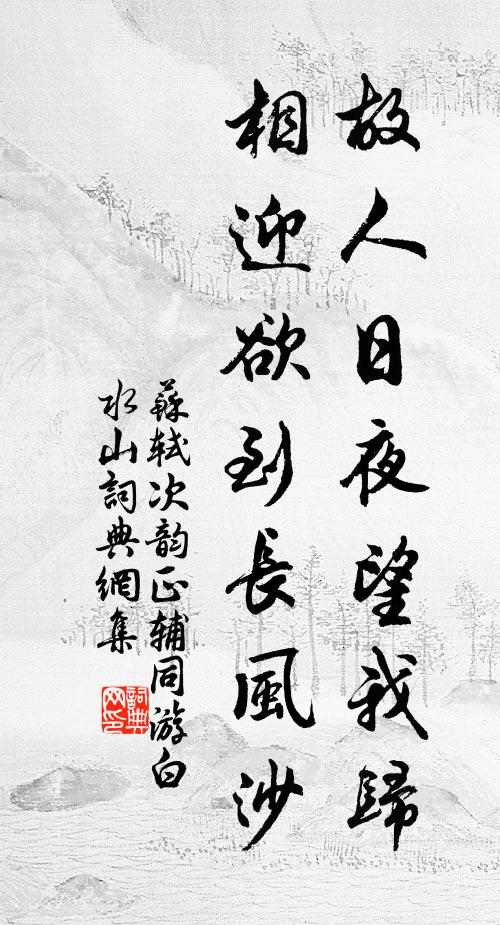 故人日夜望我歸
相迎欲到長風沙
蘇軾次韵正辅同游白
水山詞典網集
詞典
网印